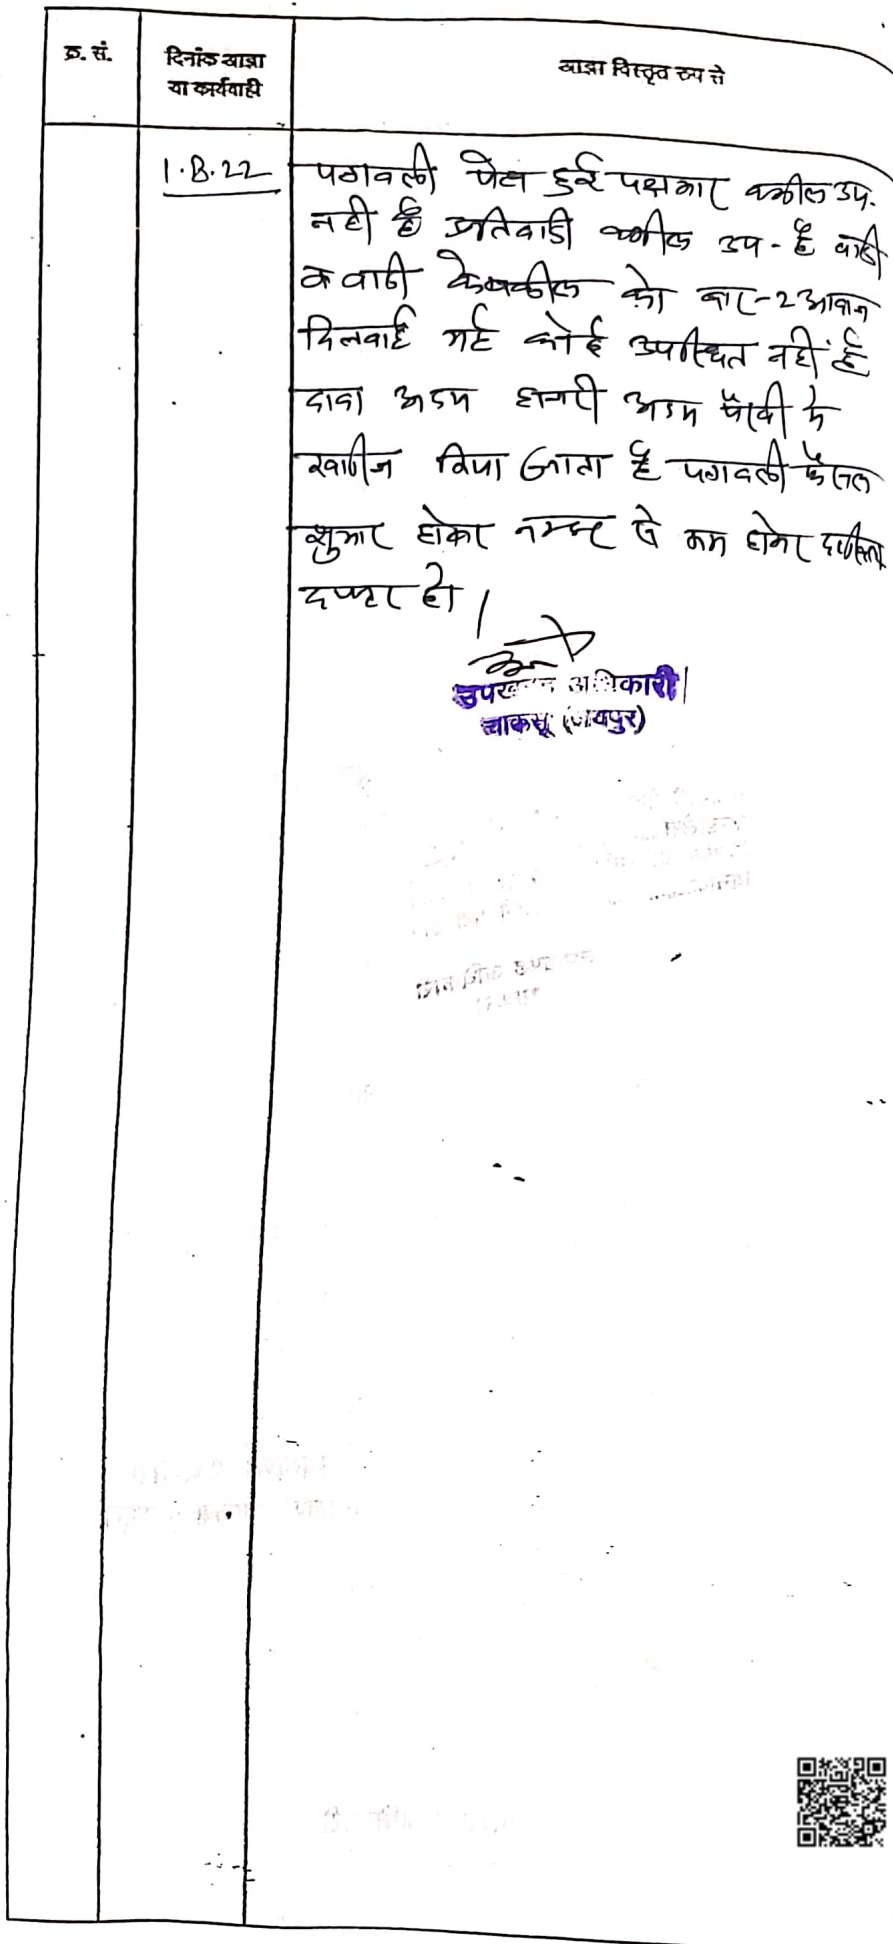 क्र. सं.
दिनांक आज्ञा
या कार्यवाही
आज्ञा विस्तृत रूप से
1.8.22
पत्रावली पेश हुई पक्षकार वकील उप.
नही है प्रतिवादी वकील उप - है वादी
व वादी के वकील को बार-2 आवाज
दिलवाई गई कोई उपस्थित नहीं है
दावा अदम हाजरी अदम पैरवी मे
खारीज किया जाता है पत्रावली फैसल
शुमार होकर नम्बर से कम होकर दाखिल
दफ्तर हो।
उपखण्ड अधिकारी
चाकसू (जयपुर)